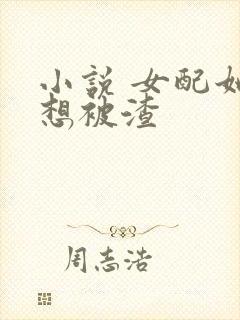 小说 女配她
想被渣
周志浩